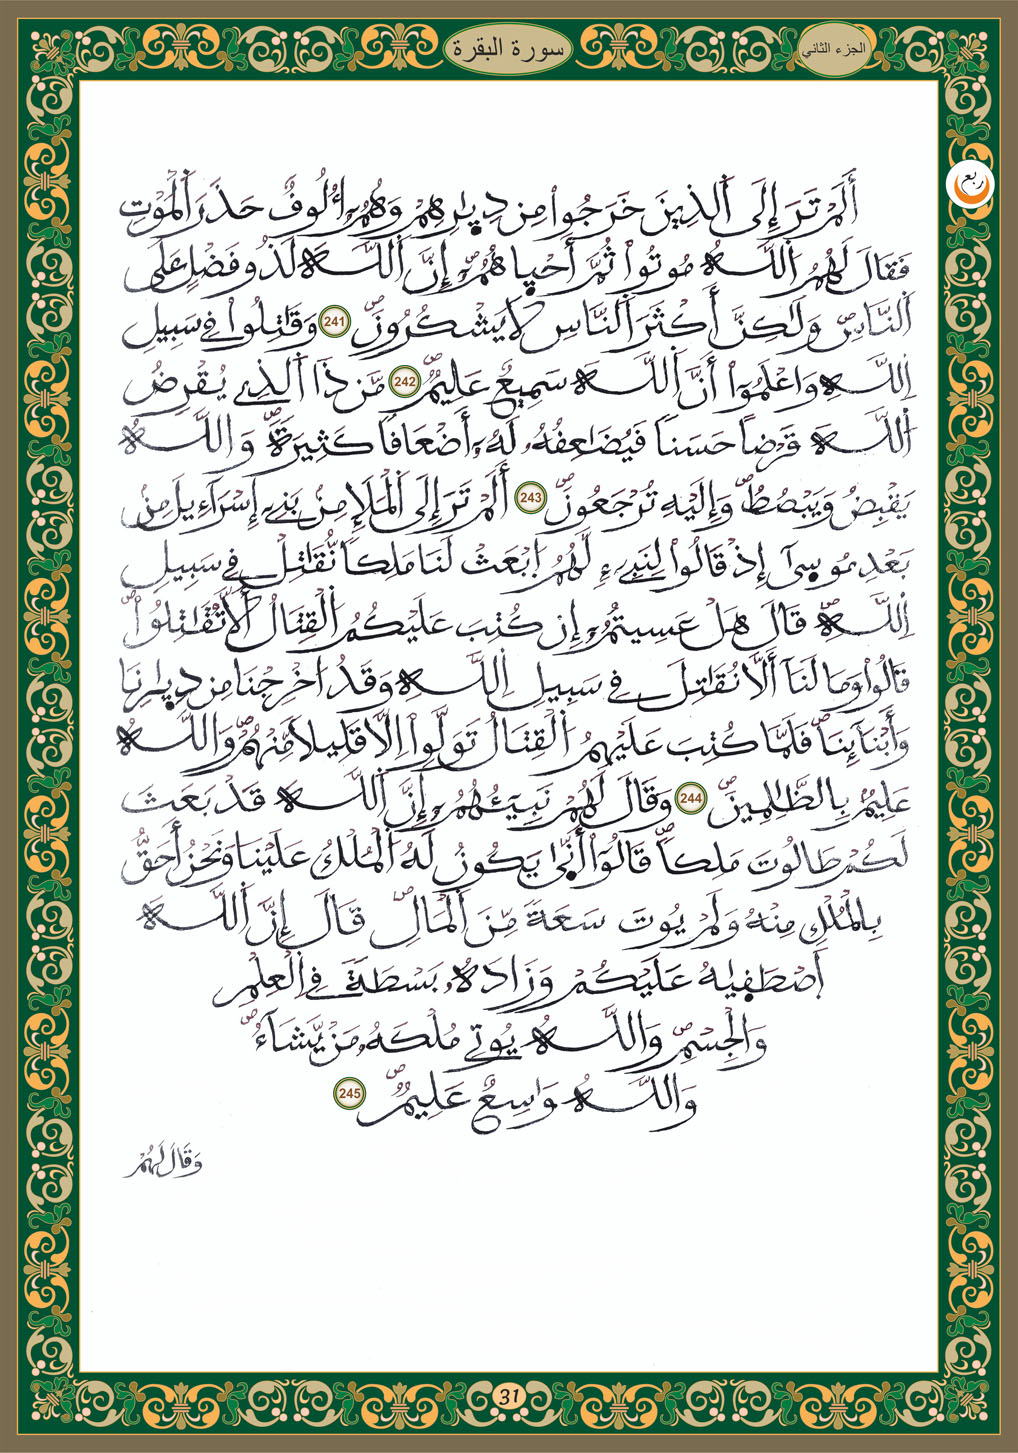 سورة البقرة
الجزء الثاني
ربع
أَلَمْ تَرَ إِلَى اَلذِينَ خَرَجُواْ مِن دِيٰرِهِمْ وَهُمُۥٓ أُلُوفٌ حَذَرَ اَلْمَوْتِ
فَقَالَ لَهُمُ اُللَّهُ مُوتُواْ ثُمَّ أَحْيٰاهُمُۥٓ إِنَّ اَللَّهَ لَذُو فَضْلٍ عَلَى
اَلنَّاسِ وَلَٰكِنَّ أَكْثَرَ اَلنَّاسِ لَا يَشْكُرُونَ 241 وَقَٰتِلُواْ فِے سَبِيلِ
اِللَّهِ وَاعْلَمُوٓاْ أَنَّ اَللَّهَ سَمِيعٌ عَلِيمٌ 242 مَّن ذَا اَلذِے يُقْرِضُ
اُللَّهَ قَرْضاً حَسَناً فَيُضَٰعِفُهُۥ لَهُۥٓ أَضْعَافاً كَثِيرَةً وَاللَّهُ
يَقْبِضُ وَيَبْصُطُ وَإِلَيْهِ تُرْجَعُونَ 243 أَلَمْ تَرَ إِلَى اَلْمَلَإِ مِنۢ بَنِےٓ إِسْرَآءِيلَ مِنۢ
بَعْدِ مُوسِىٰٓ إِذْ قَالُواْ لِنَبِےٓءٍ لَّهُمُ اُبْعَثْ لَنَا مَلِكاً نُّقَٰتِلْ فِے سَبِيلِ
اِللَّهِ قَالَ هَلْ عَسِيتُمُۥٓ إِن كُتِبَ عَلَيْكُمُ اُلْقِتَالُ أَلَّا تُقَٰتِلُواْ
قَالُواْ وَمَا لَنَآ أَلَّا نُقَٰتِلَ فِے سَبِيلِ اِللَّهِ وَقَدُ اخْرِجْنَا مِن دِيٰرِنَا
وَأَبْنَآئِنَا فَلَمَّا كُتِبَ عَلَيْهِمُ اُلْقِتَالُ تَوَلَّوِاْ اِلَّا قَلِيلاً مِّنْهُمْ وَاللَّهُ
عَلِيمٌ بِالظَّٰلِمِينَ 244 وَقَالَ لَهُمْ نَبِيٓـُٔهُمُۥٓ إِنَّ اَللَّهَ قَدْ بَعَثَ
لَكُمْ طَالُوتَ مَلِكاً قَالُوٓاْ أَنّٰى يَكُونُ لَهُ اُلْمُلْكُ عَلَيْنَا وَنَحْنُ أَحَقُّ
بِالْمُلْكِ مِنْهُ وَلَمْ يُوتَ سَعَةً مِّنَ اَلْمَالِ قَالَ إِنَّ اَللَّهَ
اَصْطَفِىٰهُ عَلَيْكُمْ وَزَادَهُۥ بَسْطَةً فِے اِلْعِلْمِ
وَالْجِسْمِ وَاللَّهُ يُوتِے مُلْكَهُۥ مَنْ يَّشَآءُ
وَاللَّهُ وَٰسِعٌ عَلِيمٌ 245
وَقَالَ لَهُمْ
31